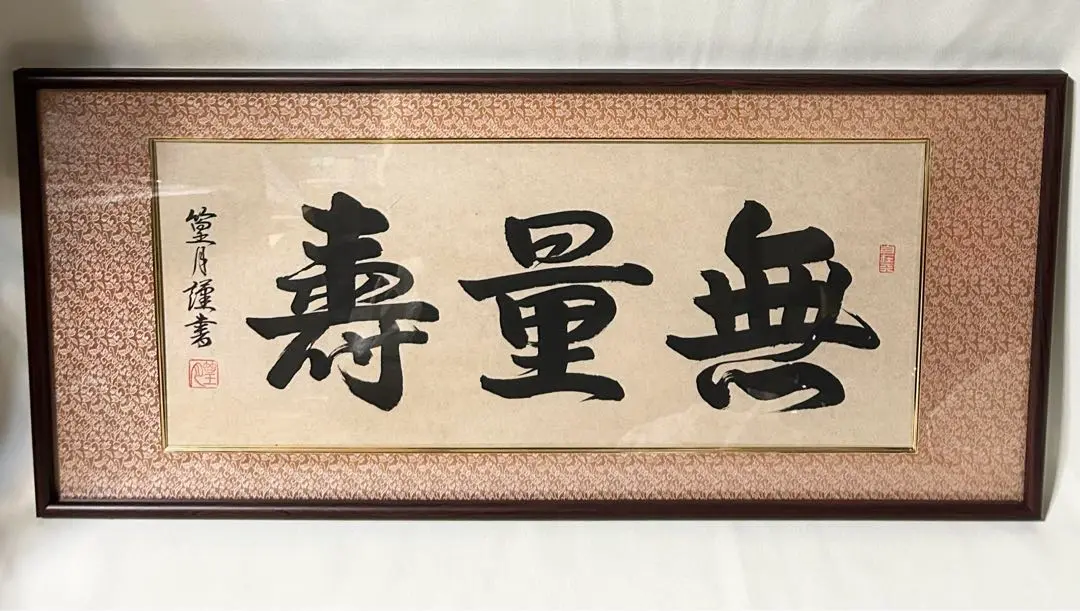 無量壽
篁月謹書